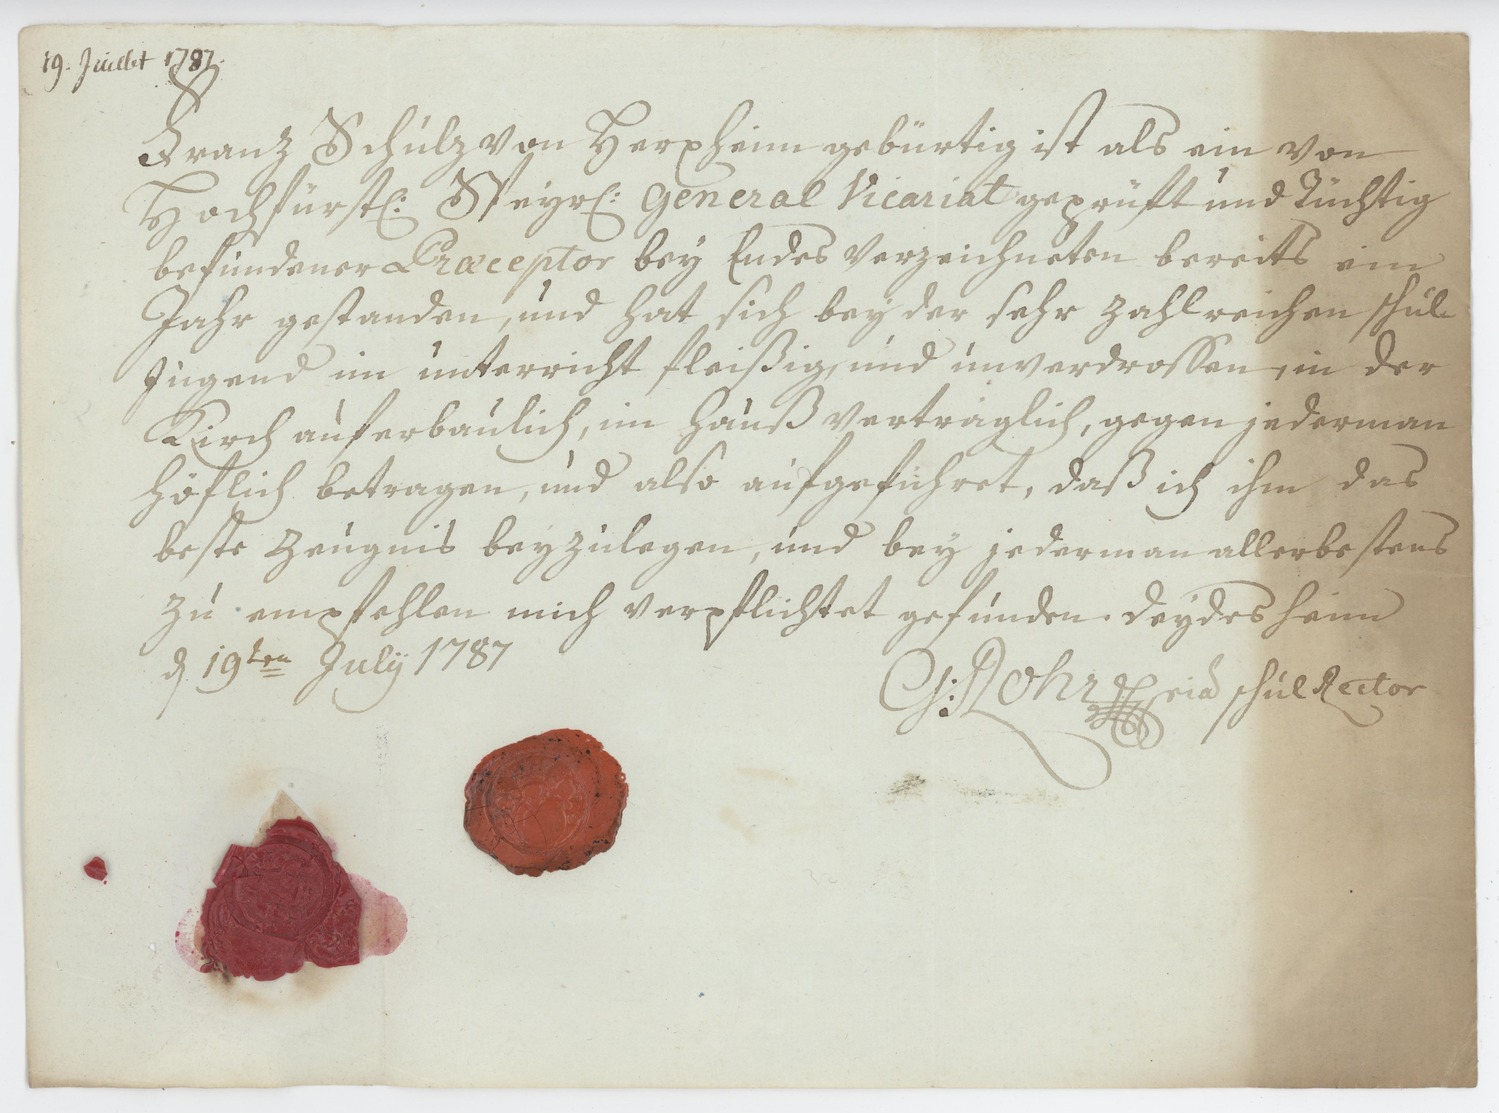 19. Juillet 1787.
Franz Schulz von Herxheim gebürtig ist als ein von
Hochfürstl: Speyrl: General Vicariat geprüft und Tüchtig
befundener Præceptor bey Endes Verzeichneten bereits ein
Jahr gestanden, und hat sich bey der sehr zahlreichen schul-
Jugend im unterricht fleißig, und unverdrossen, in der
Kirch auferbaulich, im Hauß verträglich, gegen jederman
höflich betragen, und also aufgeführet, daß ich ihm das
beste Zeugnis beyzulegen, und bey jederman allerbestens
zu empfehlen mich verpflichtet gefunden. Deydesheim
d. 19ten July 1787
G: Rohr schul Rector